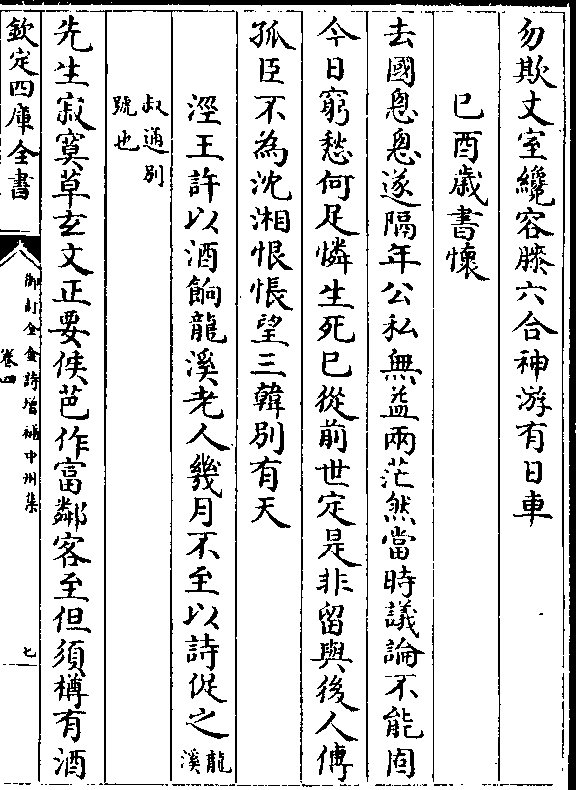 勿欺丈室纔容膝六合神游有日車
已酉歲書懷
去國悤悤遂隔年公私無益兩茫然當時議論不能固
今日窮愁何足憐生死已從前世定是非留與後人傳
孤臣不為沈湘恨悵望三韓別有天
涇王許以酒餉龍溪老人幾月不至以詩促之龍溪
叔通別
號也
先生寂寞草𤣥文正要侯芭作富鄰客至但須樽有酒
欽定四庫全書
御訂全金詩增補中州集
卷四
七